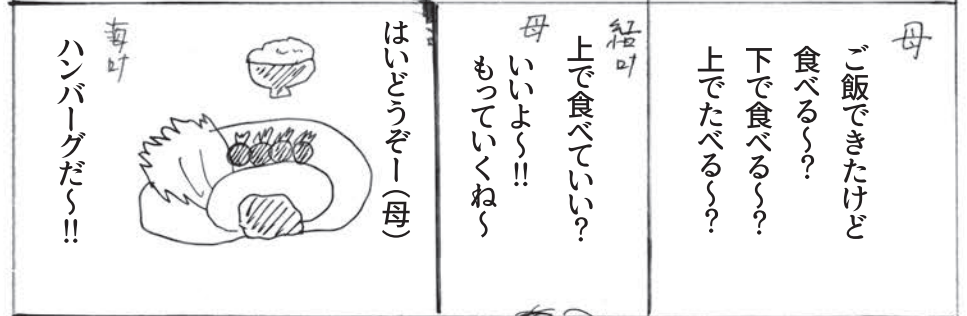 母
ご飯できたけど
食べる〜?
下で食べる〜?
上でたべる〜?
結叶
上で食べていい?
母
いいよ〜!!
もっていくね〜
はいどうぞー(母)
ハンバーグだ〜!!